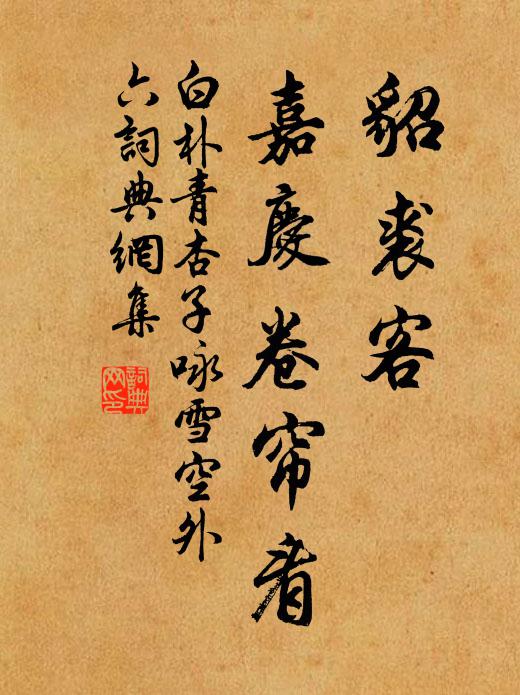 貂裘客
嘉慶卷帘看
白朴青杏子咏雪空外
六詞典網集
詞典网印